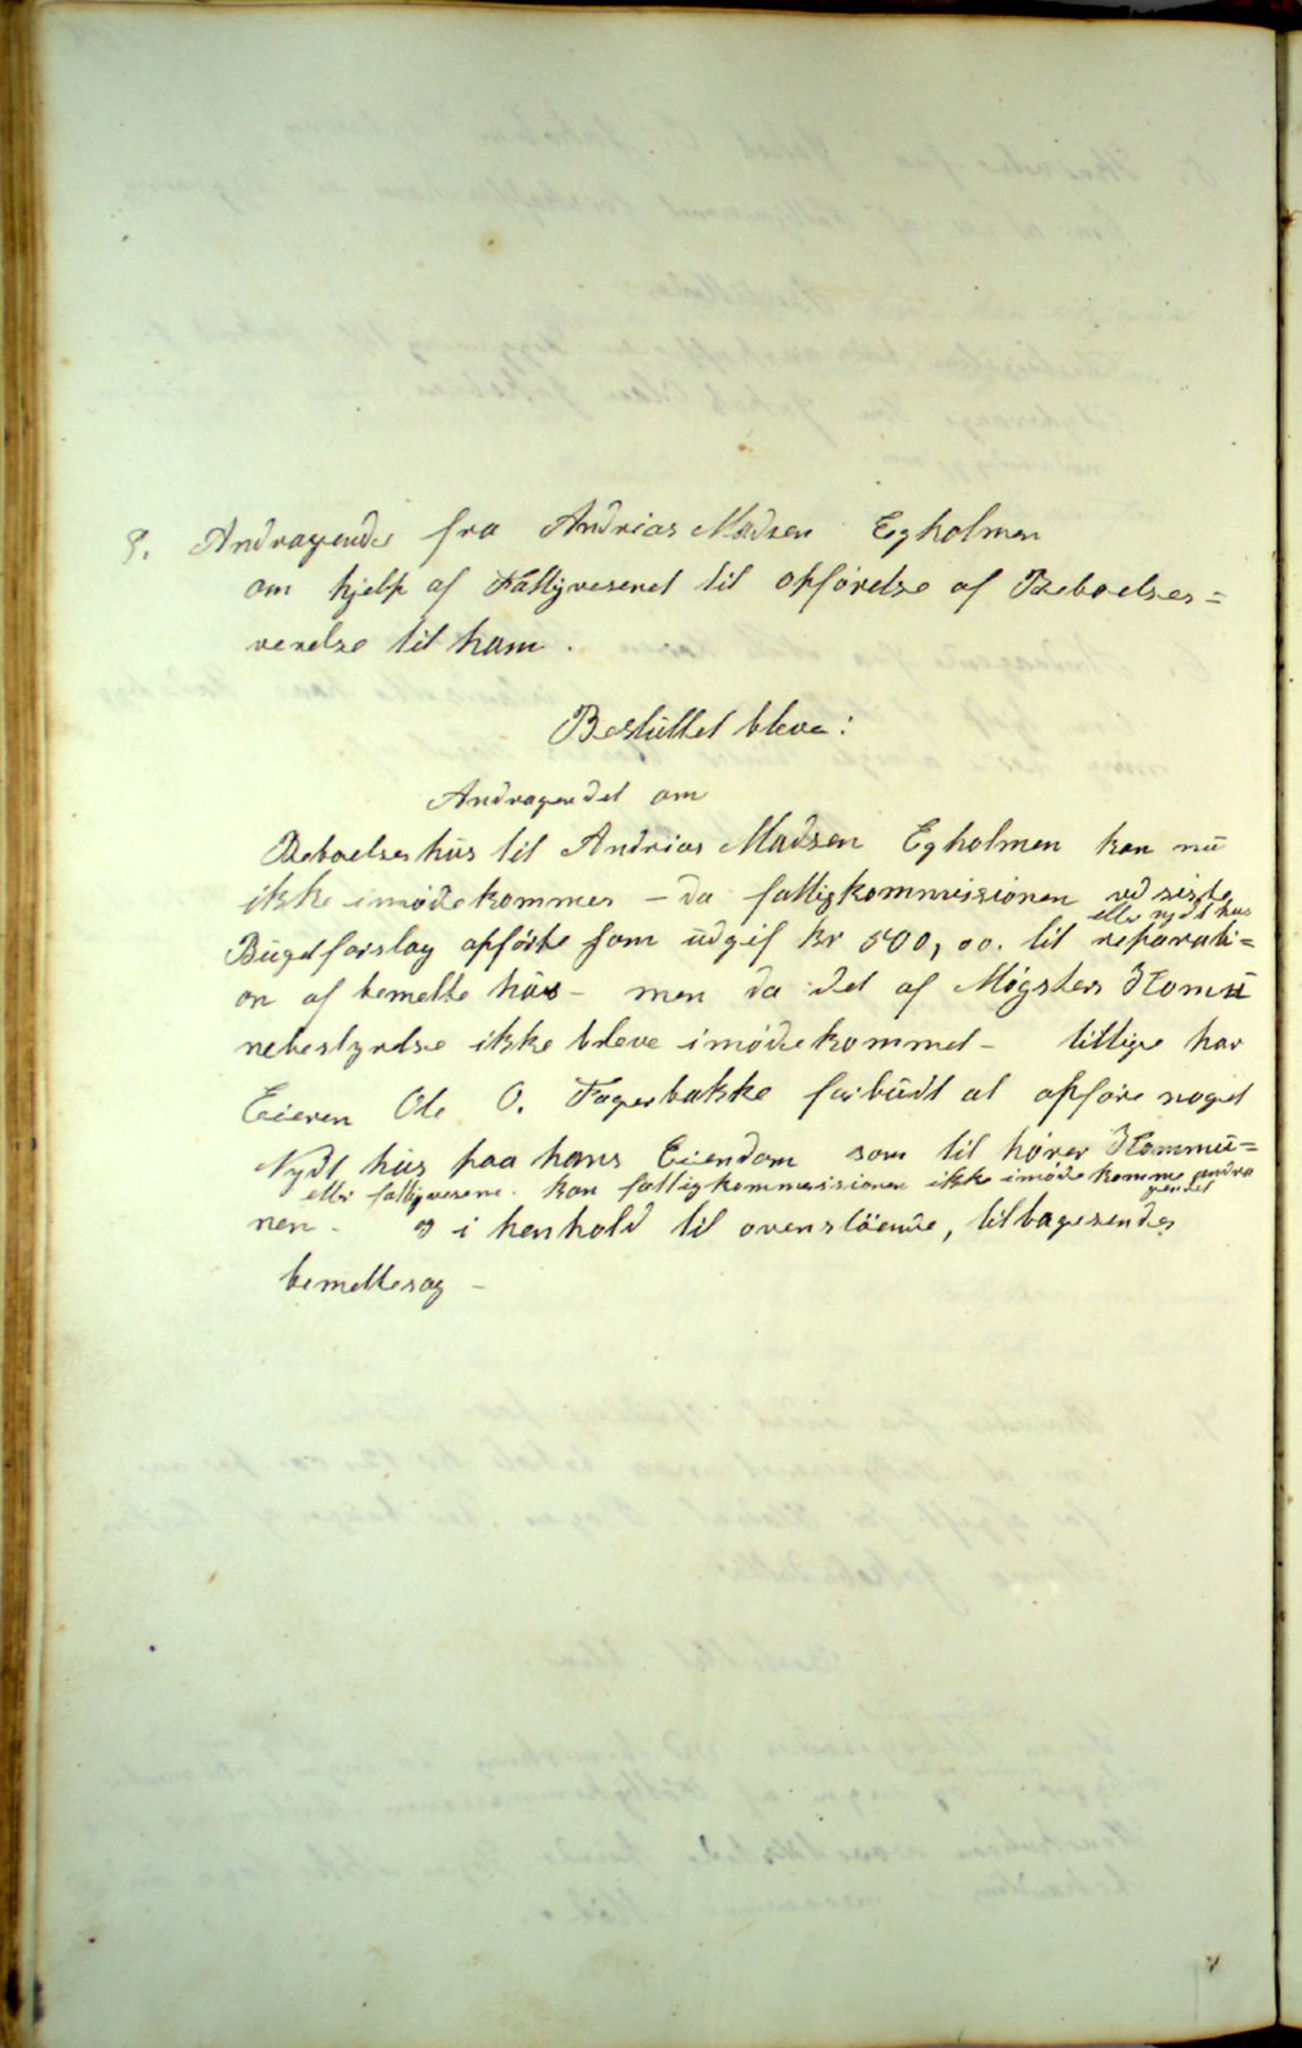 8. Andragende fra Andrias Madsen Egholmen
om hjelp af Fattigvesenet til opførelse af Beboelses=
verelse til ham.
Besluttet bleve:
Andragendet om
Beboelseshus til Andrias Madsen Egholmen kan nu
ikke imødekommes - da fattigkommissionen ved siste
eller nydt hus
Bugetforslag opførte som udgif kr 500,00. til reparati=
on af bemelte hus - men da det af Møgsters Komu
nebestyrelse ikke bleve imødekommet - tillige har
Eieren Ole O. Fagerbakke forbudt at opføre noget
Nydt hus paa hans Eiendom som til hører Kommu=
eller fattigvesene. kan fattigkommissionen ikke imøde komme andra
gendet
nen - og i henhold til ovenstående, tilbagesendes
bemeltesag -